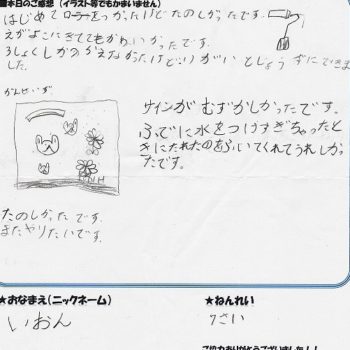 ■本日のご感想（イラスト等でもかまいません）
はじめて　をつかったけどたのしかったです.
えがよこにきててもかわいかったです.
ろしょくしかのかえなかったけど、いがいとじょうずにできま
した.
かんせいず
サインがむずかしかったです。
ふでに水をつけすぎちゃったと
きにたれたのをふいてくれてうれしかっ
たです。
たのしかったです.
またヤリたいです.
★おなまえ（ニックネーム）
★ねんれい
いおん
7さい
ご協力ありがとうございました！！